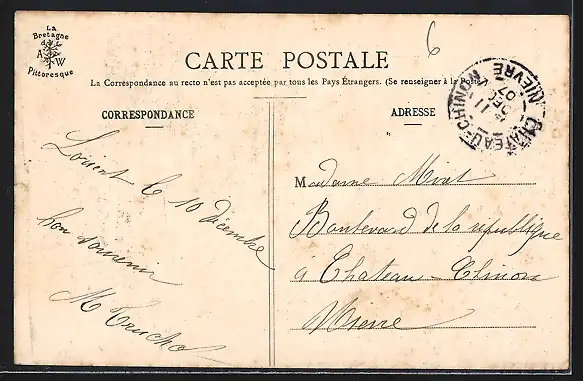 La
Bretagne
A W
Pittoresque
CARTE POSTALE
La Correspondance au recto n'est pas acceptée par tous les Pays Étrangers. (Se renseigner à la Poste)
CORRESPONDANCE
Lorient le 10 décembre
bon souvenir
M
ADRESSE
6
CHATEAU-CHINON
11
DEC
07
NIEVRE
Madame
Boulevard de la république
à Chateau-Chinon
Nievre